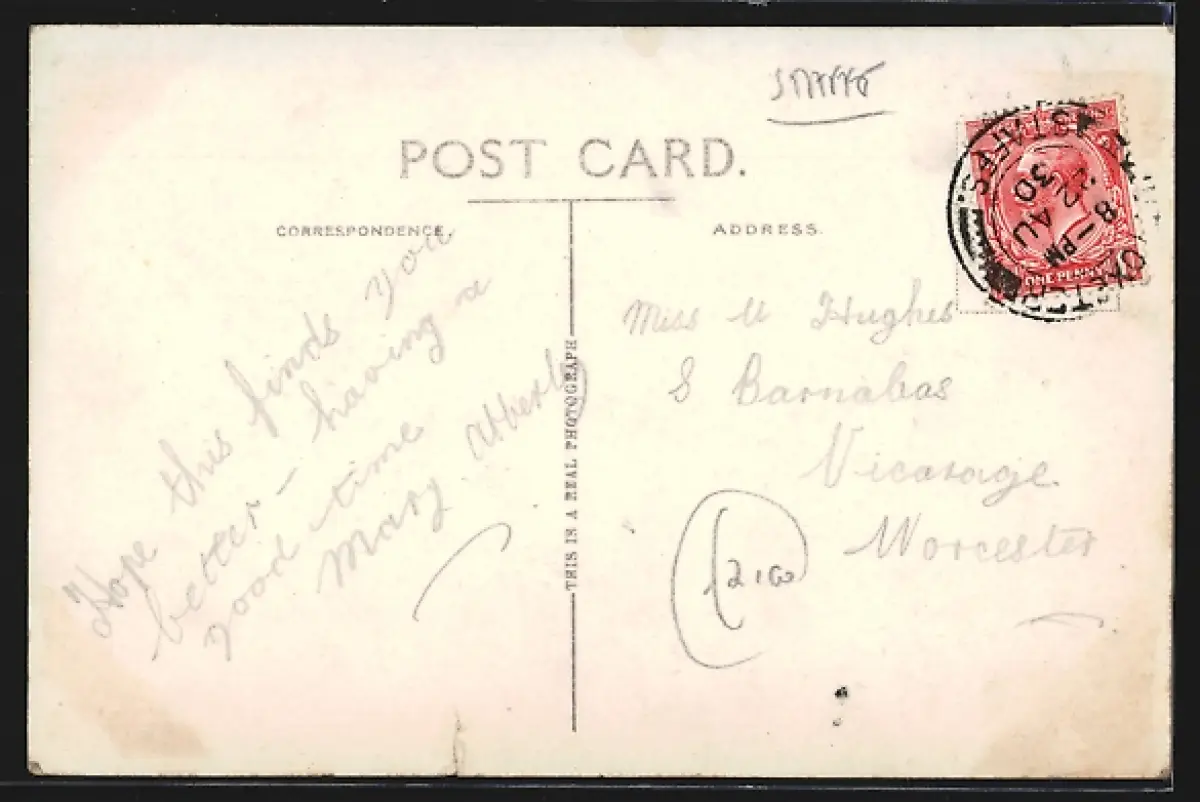 POST CARD.
CORRESPONDENCE.
ADDRESS.
Hope this finds you
better - having a
good time
Mary
THIS IS A REAL PHOTOGRAPH
Miss M Hughes
S Barnabas
Vicarage
Worcester
STAFFS.
8 - PM
30 AU
22
ONE PENNY